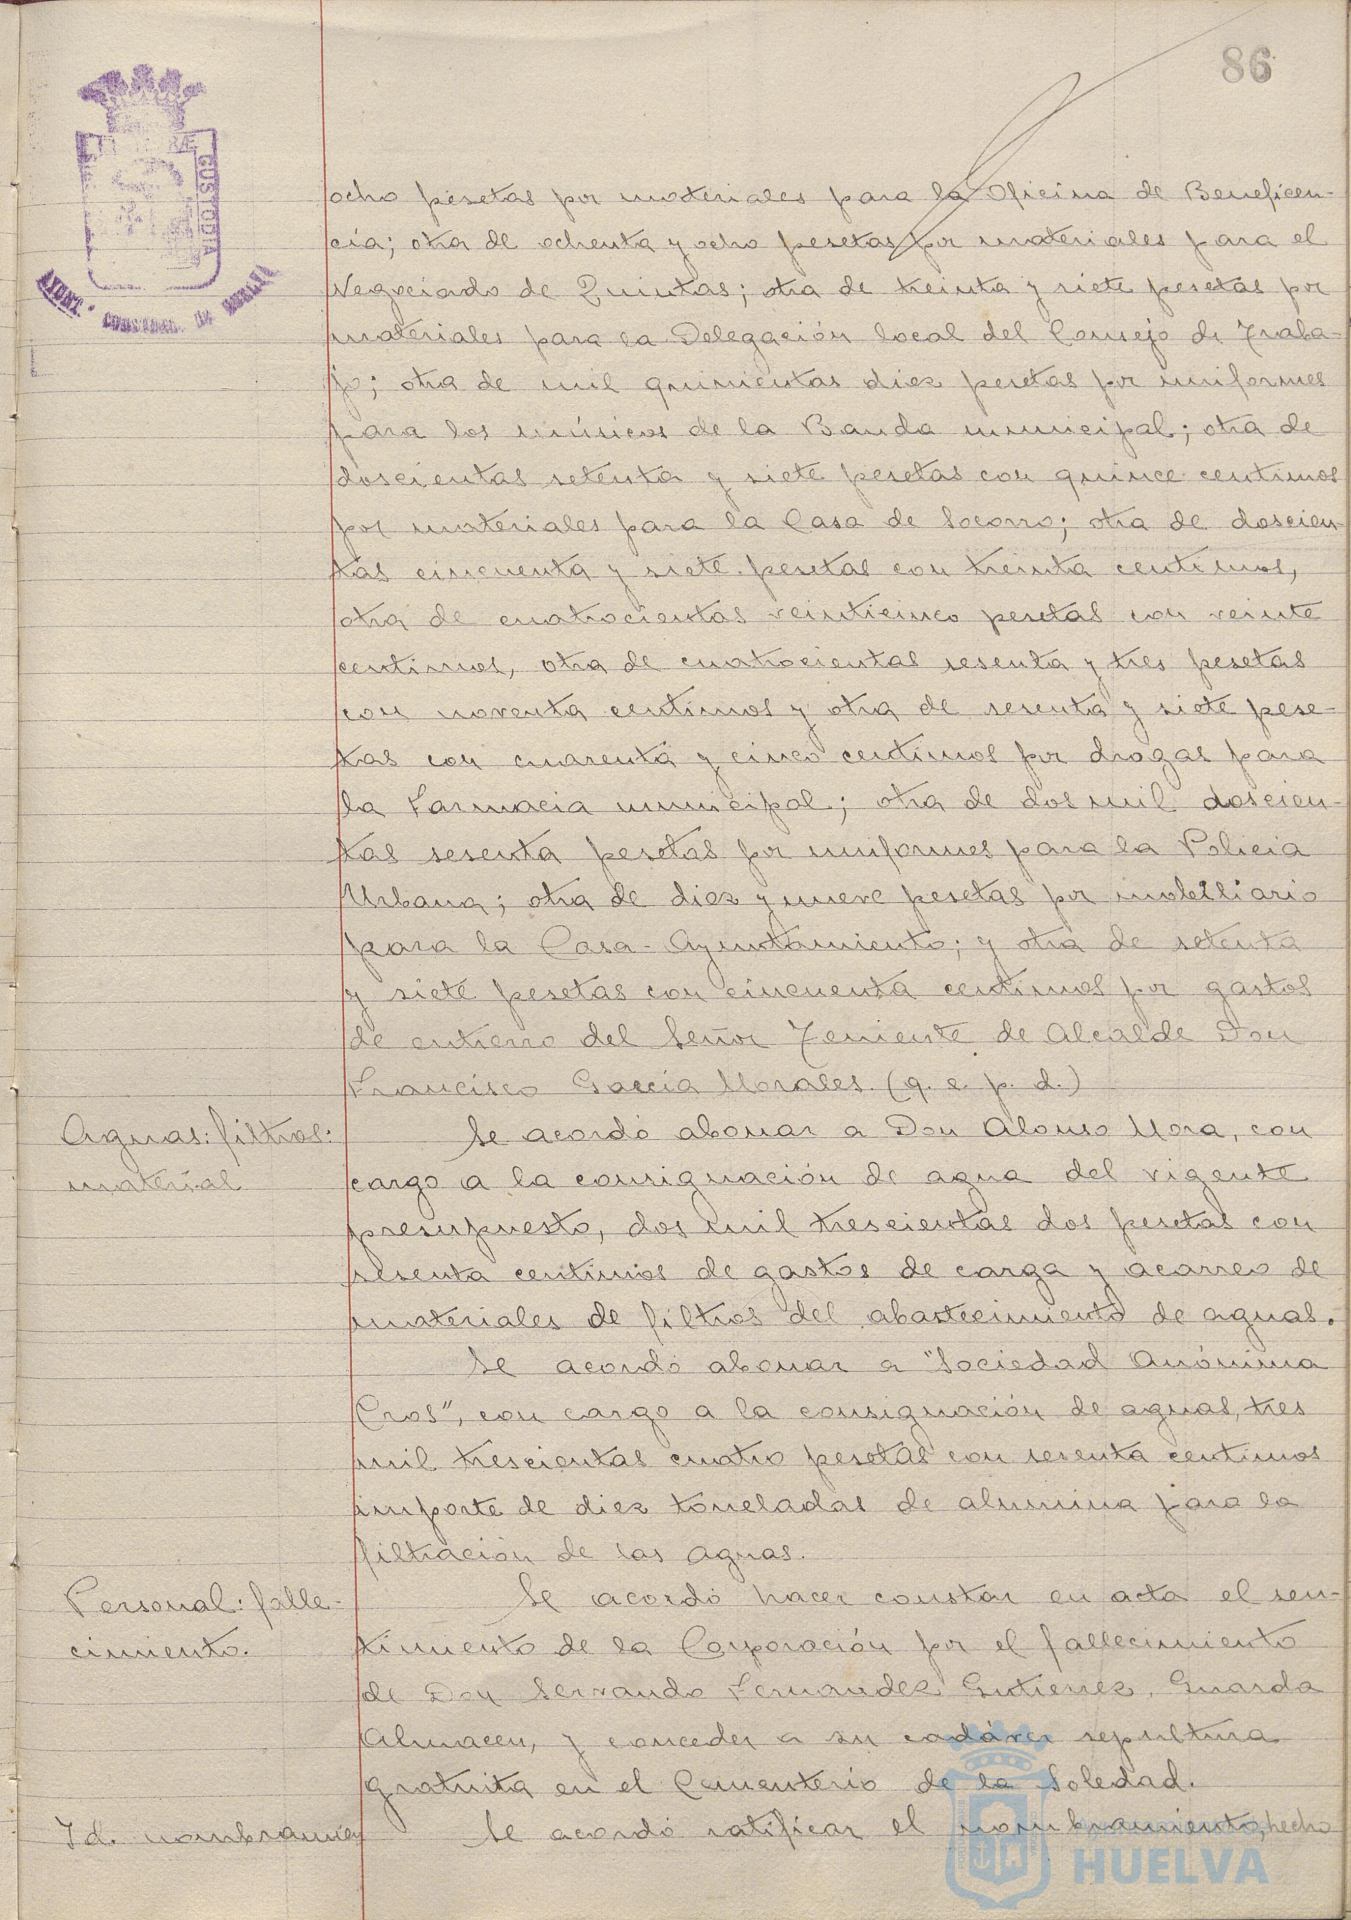 86
CUSTODIA
AYUNT. CONSTNAL. DE HUELVA
ocho pesetas por materiales para la Oficina de Beneficen-
cia; otra de ochenta y ocho pesetas por materiales para el
Negociado de Quintas; otra de treinta y siete pesetas por
materiales para la Delegación local del Consejo de Traba-
jo; otra de mil quinientas diez pesetas por uniformes
para los músicos de la Banda municipal; otra de
doscientas setenta y siete pesetas con quince centimos
por materiales para la Casa de Socorro; otra de doscien-
tas cincuenta y siete pesetas con treinta centimos,
otra de cuatrocientas veinticinco pesetas con veinte
centimos, otra de cuatrocientas sesenta y tres pesetas
con noventa centimos y otra de sesenta y siete pese-
tas con cuarenta y cinco centimos por drogas para
la Farmacia municipal; otra de dos mil doscien-
tas sesenta pesetas por uniformes para la Policia
Urbana; otra de diez y nueve pesetas por mobiliario
para la Casa-Ayuntamiento; y otra de setenta
y siete pesetas con cincuenta centimos por gastos
de entierro del Señor Teniente de Alcalde Don
Francisco García Morales (q. e. p. d.)
Aguas: filtros:
material
Se acordó abonar a Don Alonso Mora, con
cargo a la consignación de agua del vigente
presupuesto, dos mil trescientas dos pesetas con
sesenta centimos de gastos de carga y acarreo de
materiales de filtros del abastecimiento de aguas.
Se acordó abonar a "Sociedad Anónima
Cros", con cargo a la consignación de aguas, tres
mil trescientas cuatro pesetas con sesenta centimos
importe de diez toneladas de alumina para la
filtración de las aguas.
Personal: falle-
cimiento.
Se acordó hacer constar en acta el sen-
timiento de la Corporación por el fallecimiento
de Don Servando Fernandez Gutierrez, Guarda
Almacen, y conceder a su cadáver sepultura
gratuita en el Cementerio de la Soledad.
Id. nombramien
Se acordó ratificar el nombramiento, hecho
HUELVA